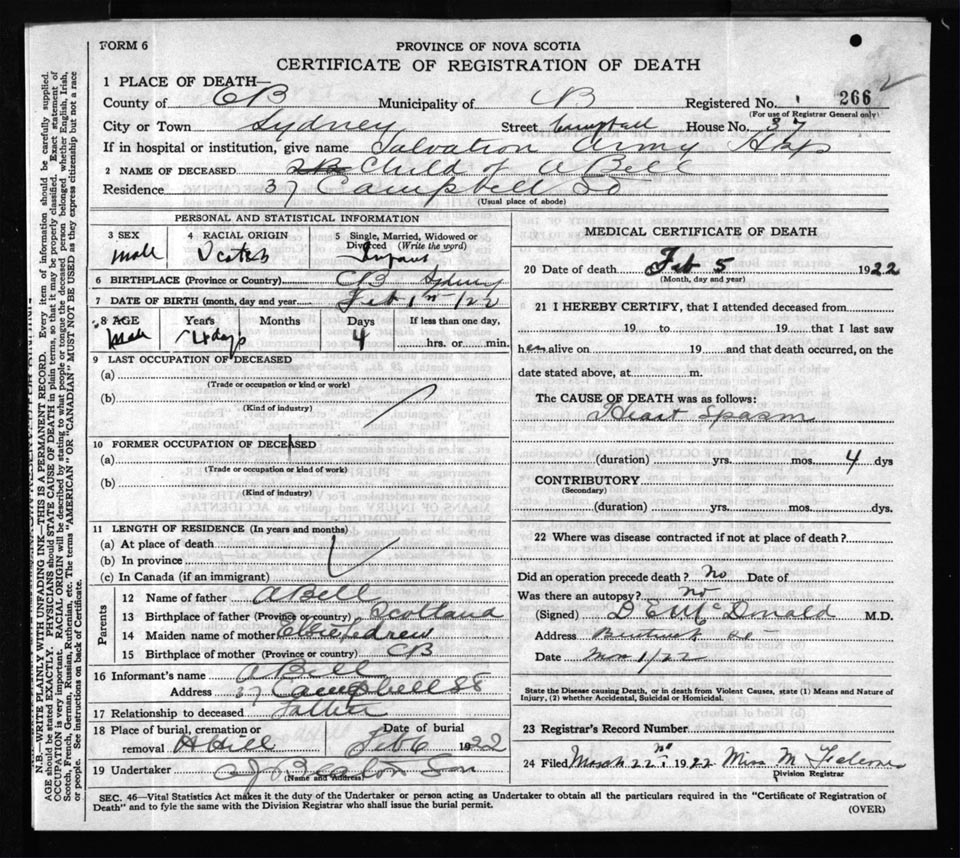 FORM 6
PROVINCE OF NOVA SCOTIA
CERTIFICATE OF REGISTRATION OF DEATH
1 PLACE OF DEATH—
County of CB Municipality of CB Registered No. 266
(For use of Registrar General only)
City or Town Sydney Street Campbell House No. 37
If in hospital or institution, give name Salvation Army Hosp
2 NAME OF DECEASED Child of A Bell
Residence 37 Campbell St
(Usual place of abode)
PERSONAL AND STATISTICAL INFORMATION
3 SEX male
4 RACIAL ORIGIN Scotch
5 Single, Married, Widowed or Divorced (Write the word) Infant
6 BIRTHPLACE (Province or Country) CB Sydney
7 DATE OF BIRTH (month, day and year) Feb 1st /22
8 AGE Years Months Days If less than one day,
Male 4 days 4 hrs. or min.
9 LAST OCCUPATION OF DECEASED
(a)
(Trade or occupation or kind or work)
(b)
(Kind of industry)
10 FORMER OCCUPATION OF DECEASED
(a)
(Trade or occupation or kind or work)
(b)
(Kind of industry)
11 LENGTH OF RESIDENCE (In years and months)
(a) At place of death
(b) In province
(c) In Canada (if an immigrant)
Parents
12 Name of father A Bell
13 Birthplace of father (Province or country) Scotland
14 Maiden name of mother
15 Birthplace of mother (Province or country) CB
16 Informant's name A Bell
Address 37 Campbell St
17 Relationship to deceased Father
18 Place of burial, cremation or removal Date of burial
Feb 6 1922
19 Undertaker Beaton Son
(Name and Address)
MEDICAL CERTIFICATE OF DEATH
20 Date of death Feb 5 1922
(Month, day and year)
21 I HEREBY CERTIFY, that I attended deceased from
19 to 19 that I last saw
h alive on 19 and that death occurred, on the
date stated above, at m.
The CAUSE OF DEATH was as follows:
Heart Spasm
(duration) yrs. mos. 4 dys
CONTRIBUTORY
(Secondary)
(duration) yrs. mos. dys.
22 Where was disease contracted if not at place of death?
Did an operation precede death? No Date of
Was there an autopsy? No
(Signed) D E McDonald M.D.
Address
Date 1/22
State the Disease causing Death, or in death from Violent Causes, state (1) Means and Nature of
Injury, (2) whether Accidental, Suicidal or Homicidal.
23 Registrar's Record Number
24 Filed March 22 1922 Miss M
Division Registrar
SEC. 46—Vital Statistics Act makes it the duty of the Undertaker or person acting as Undertaker to obtain all the particulars required in the "Certificate of Registration of
Death" and to fyle the same with the Division Registrar who shall issue the burial permit.
(OVER)
N.B.—WRITE PLAINLY WITH UNFADING INK—THIS IS A PERMANENT RECORD. Every item of information should be carefully supplied.
AGE should be stated EXACTLY. PHYSICIANS should STATE CAUSE OF DEATH in plain terms, so that it may be properly classified. Exact statement of
OCCUPATION is very important. RACIAL ORIGIN will be described by stating to what people or tongue the deceased person belonged whether English, Irish,
Scotch, French, German, Russian, Ruthenian, etc. The terms "AMERICAN" OR "CANADIAN" MUST NOT BE USED as they express citizenship but not a race
or people. See instructions on back of Certificate.